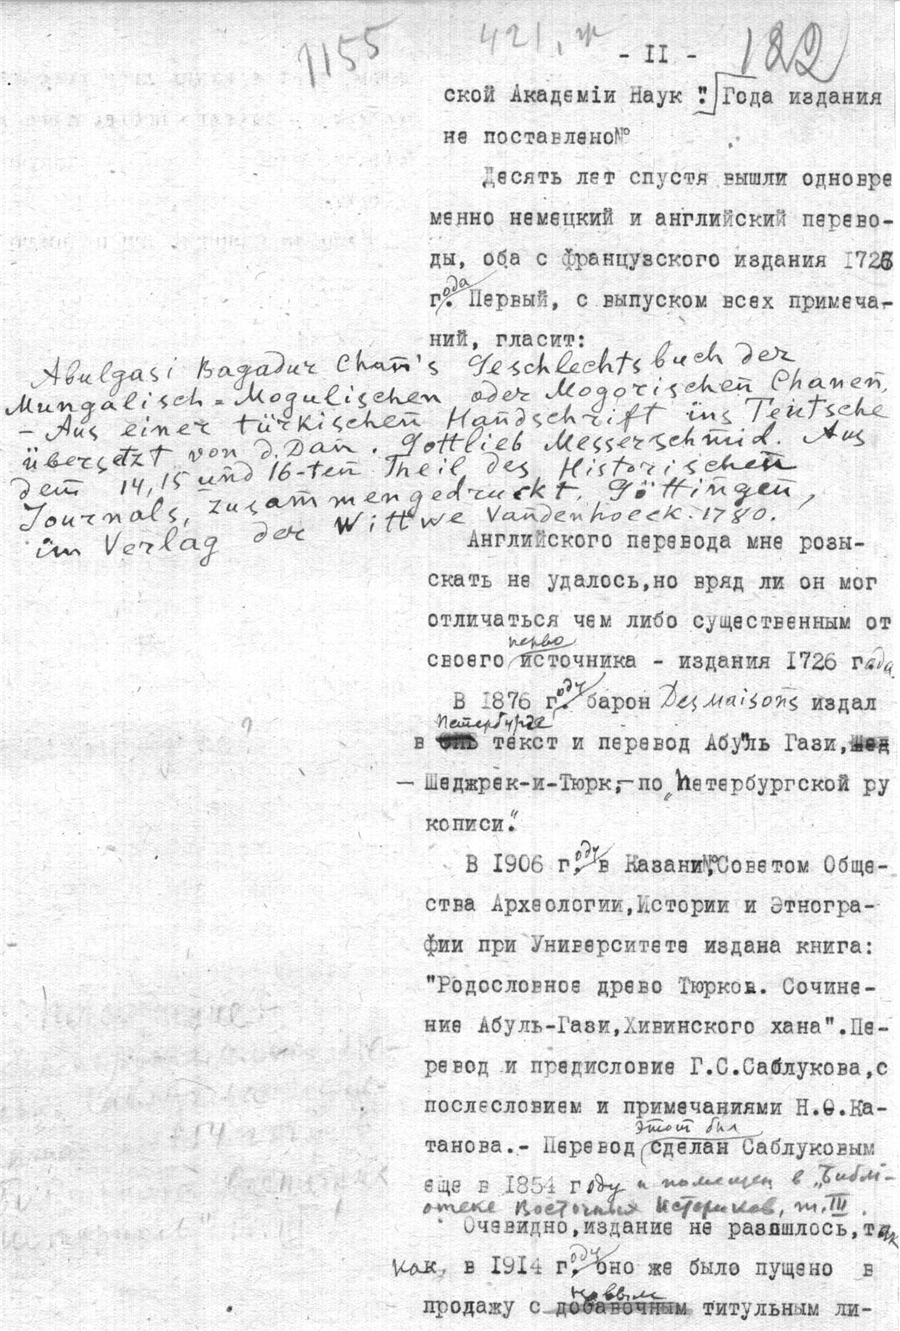 1155 421, ж 182
- II -
ской Академіи Наук ". Года издания
не поставлено№
Десять лет спустя вышли одновре
менно немецкий и английский перево-
ды, оба с французского издания 1726
года. Первый, с выпуском всех примеча-
ний, гласит:
Abulgasi Bagadur Chan's Geschlechtsbuch der
Mungalisch=Mogulischen oder Mogorischen Chanen.
- Aus einer türkischen Handschrift ins Teutsche
übersetzt von d. Dan. Gottlieb Messerschmid. Aus
dem 14, 15 und 16-ten Theil des Historischen
Journals, zusammengedruckt. Göttingen,
im Verlag der Wittwe Vandenhoeck. 1780.
Английского перевода мне розы-
скать не удалось,но вряд ли он мог
отличаться чем либо существенным от
своего первоисточника - издания 1726 года
В 1876 году барон Desmaisons издал
в Петербурге текст и перевод Абуль Гази,
- Шеджрек-и-Тюрк,- по „Петербургской ру
кописи".
В 1906 году в Казани№,Советом Обще-
ства Археологии,Истории и Этногра-
фии при Университете издана книга:
"Родословное древо Тюрков. Сочине-
ние Абуль-Гази,Хивинского хана".Пе-
ревод и предисловие Г.С.Саблукова,с
послесловием и примечаниями Н.Ѳ.Ка-
танова.- Перевод этот был сделан Саблуковым
еще в 1854 году и помещен в „Библи-
отеке Восточных Историков, т. III.
Очевидно,издание не разошлось,так
как, в 1914 году оно же было пущено в
продажу с новым титульным ли-